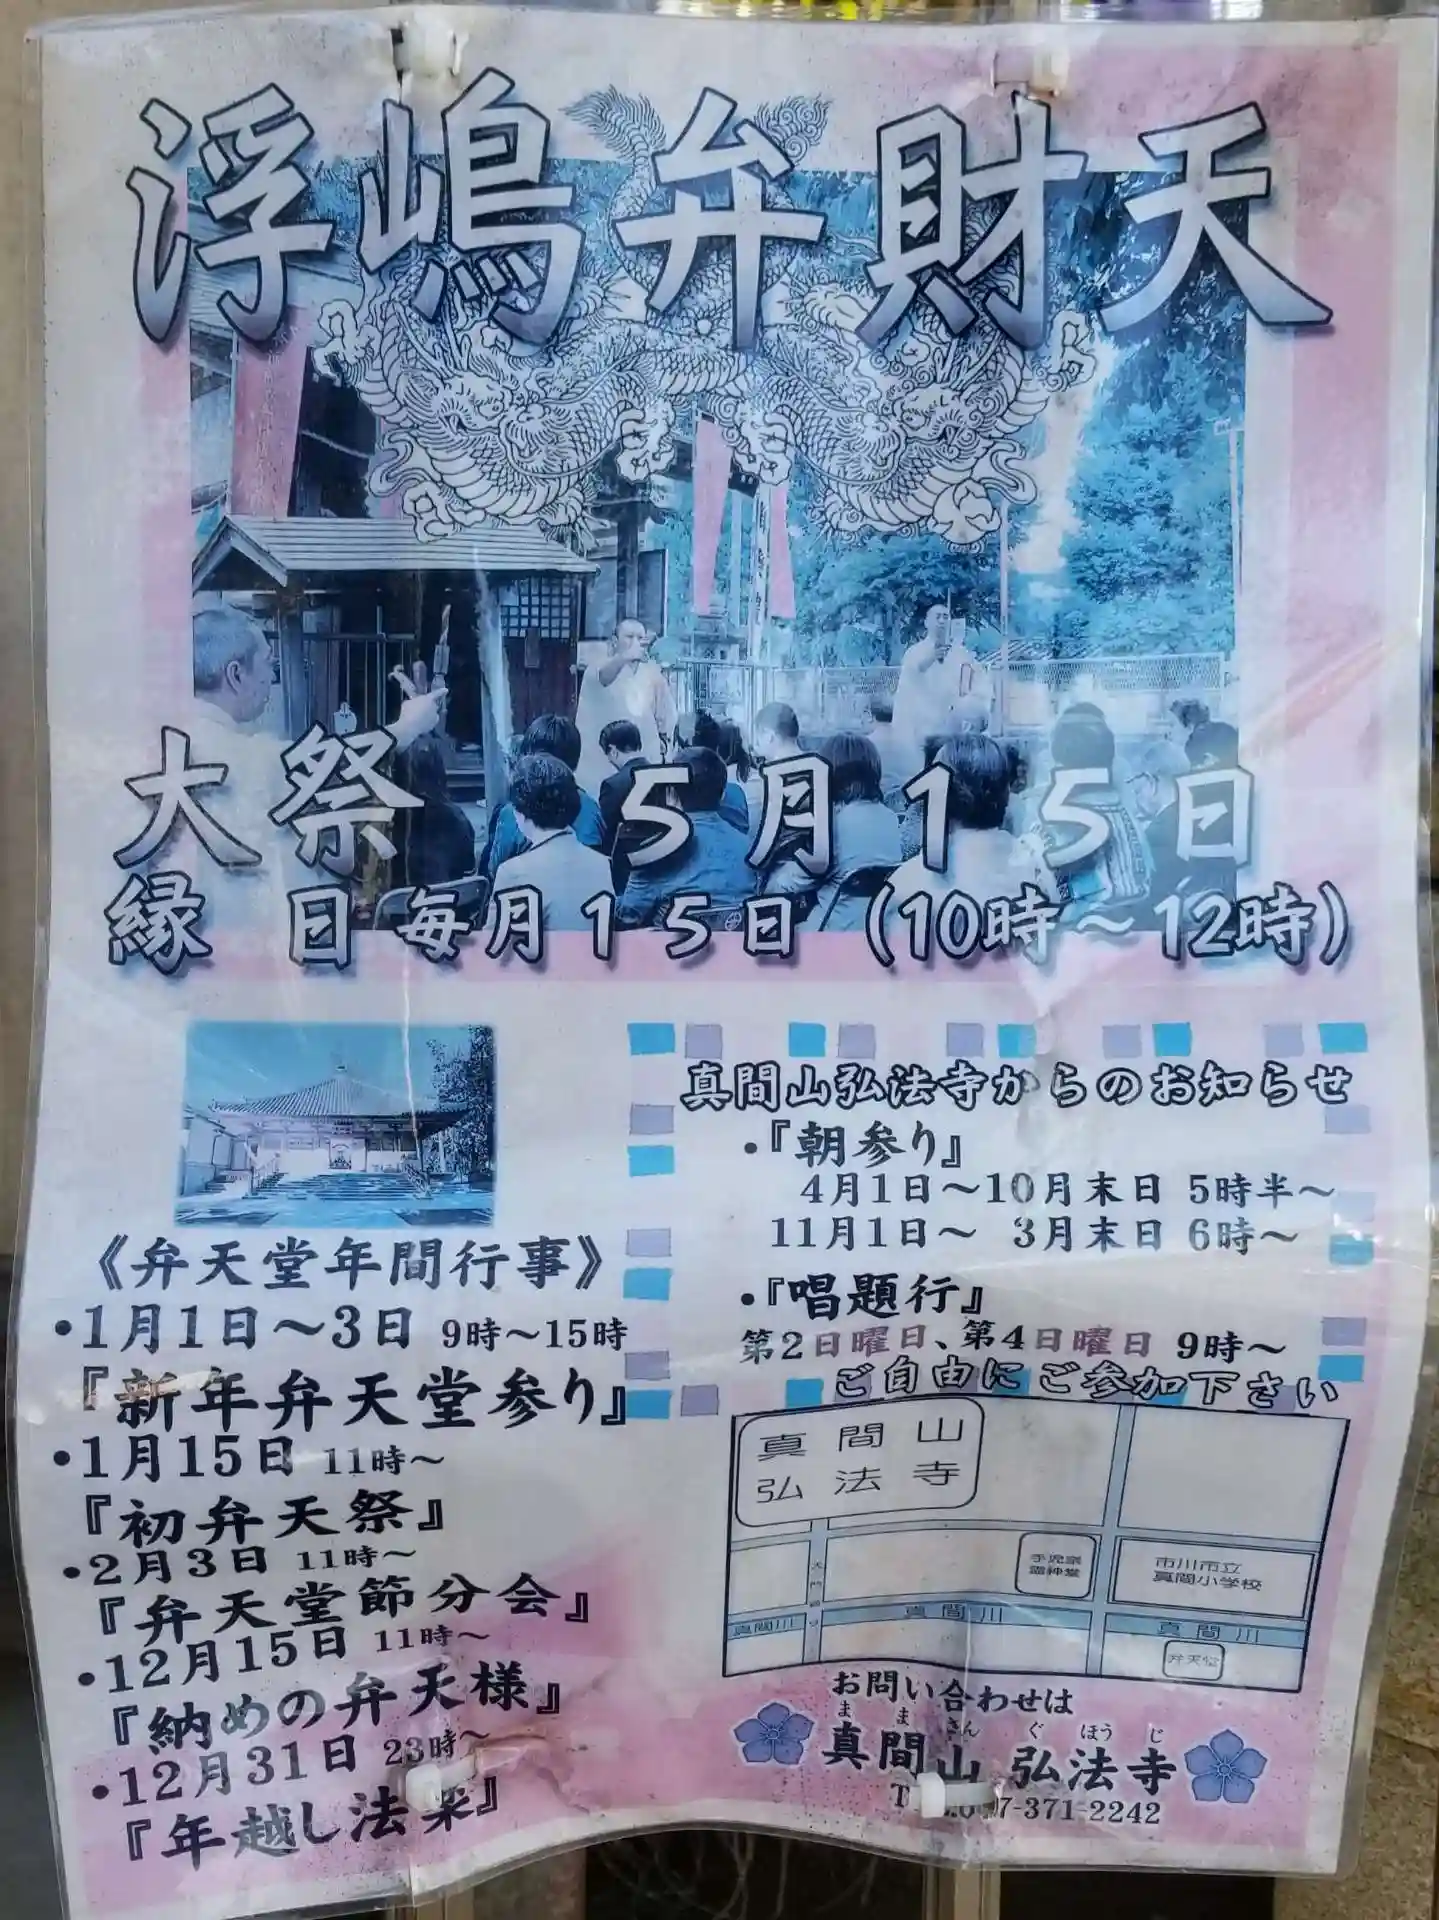 浮嶋弁財天
大祭 5月15日
縁日 毎月15日(10時~12時)
《弁天堂年間行事》
・1月1日~3日 9時~15時
『新年弁天堂参り』
・1月15日 11時~
『初弁天祭』
・2月3日 11時~
『弁天堂節分会』
・12月15日 11時~
『納めの弁天様』
・12月31日 23時~
『年越し法楽』
真間山弘法寺からのお知らせ
・『朝参り』
4月1日~10月末日 5時半~
11月1日~ 3月末日 6時~
・『唱題行』
第2日曜日、第4日曜日 9時~
ご自由にご参加下さい
真間山
弘法寺
手児奈
霊神堂
市川市立
真間小学校
真間川
真間川
真間川
弁天堂
お問い合わせは
ま ま さん ぐ ほう じ
真間山 弘法寺
7-371-2242